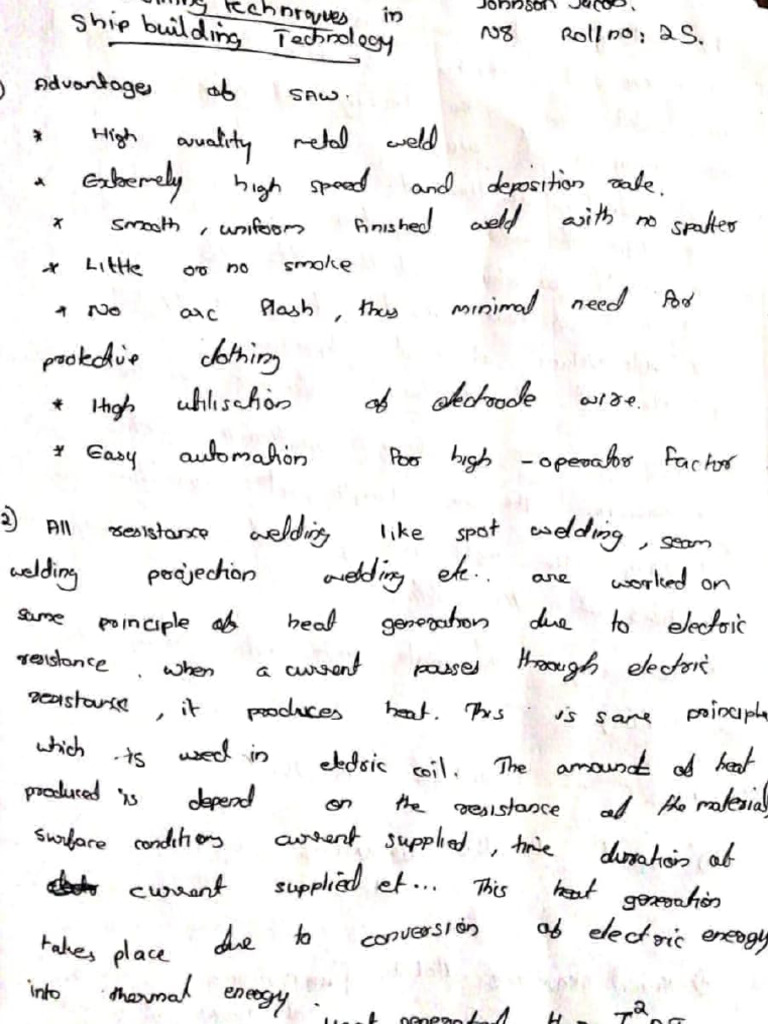 Techniques in
Ship building Technology
Johnson Jacob.
N8 Roll no: 25.
Advantages of SAW.
* High quality metal weld
* Extremely high speed and deposition rate.
* Smooth, uniform finished weld with no spatter
* Little or no smoke
* No arc flash, thus minimal need for
protective clothing
* High utilisation of electrode wire.
* Easy automation for high -operator factor
2) All resistance welding like spot welding, seam
welding projection welding etc.. are worked on
same principle of heat generation due to electric
resistance. When a current passes through electric
resistance, it produces heat. This is same principle
which is used in electric coil. The amount of heat
produced is depend on the resistance of the material
surface conditions current supplied, time duration of
current supplied et... This heat generation
takes place due to conversion of electric energy
into thermal energy.
Heat generated H =